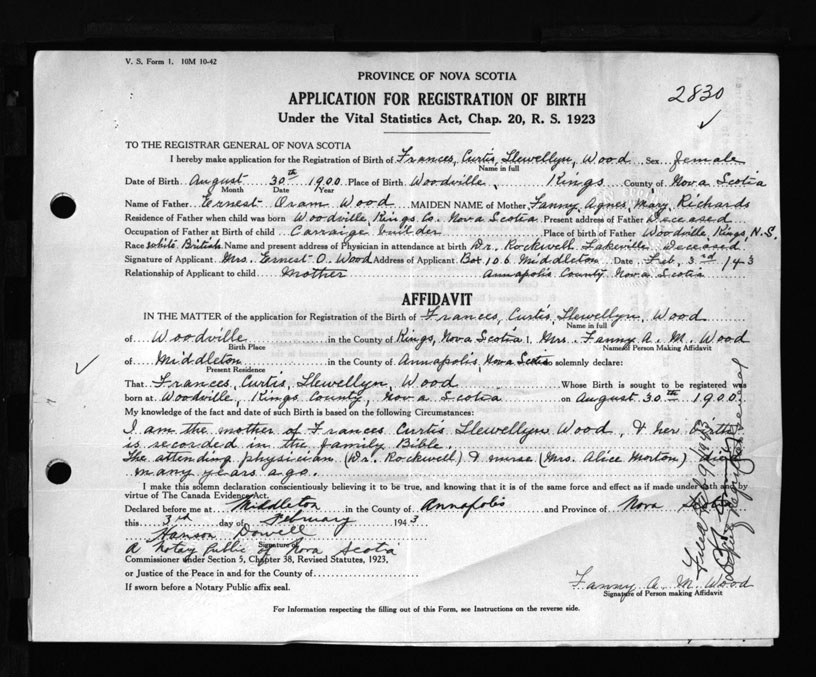 V. S. Form 1. 10M 10-42
PROVINCE OF NOVA SCOTIA
2830
APPLICATION FOR REGISTRATION OF BIRTH
Under the Vital Statistics Act, Chap. 20, R. S. 1923
TO THE REGISTRAR GENERAL OF NOVA SCOTIA
I hereby make application for the Registration of Birth of Frances, Curtis, Llewellyn, Wood Sex female
Name in full
Date of Birth August 30th 1900 Place of Birth Woodville, Kings County of Nova Scotia
Month Date Year
Name of Father Ernest Oram Wood MAIDEN NAME of Mother Fanny, Agnes, Mary, Richards
Residence of Father when child was born Woodville, Kings Co. Nova Scotia Present address of Father Deceased
Occupation of Father at Birth of child Carraige builder Place of birth of Father Woodville, Kings, N.S.
Race white British Name and present address of Physician in attendance at birth Dr. Rockwell Lakeville, Deceased
Signature of Applicant Mrs. Ernest O. Wood Address of Applicant Box 106 Middleton Date Feb. 3rd /43
Relationship of Applicant to child Mother Annapolis County Nova Scotia
AFFIDAVIT
IN THE MATTER of the application for Registration of the Birth of Frances, Curtis, Llewellyn, Wood
Name in full
of Woodville in the County of Kings, Nova Scotia I, Mrs. Fanny A. M. Wood
Birth Place Name of Person Making Affidavit
of Middleton in the County of Annapolis, Nova Scotia solemnly declare:
Present Residence
That Frances, Curtis, Llewellyn, Wood Whose Birth is sought to be registered was
born at Woodville, Kings County, Nova Scotia on August 30th 1900.
My knowledge of the fact and date of such Birth is based on the following Circumstances:
I am the mother of Frances Curtis Llewellyn Wood, & her birth
is recorded in the family Bible.
The attending physician (Dr. Rockwell) & nurse (Mrs. Alice Morton) died
many years ago.
I make this solemn declaration conscientiously believing it to be true, and knowing that it is of the same force and effect as if made under oath and by
virtue of The Canada Evidence Act.
Declared before me at Middleton in the County of Annapolis and Province of Nova Scotia
this 3rd day of February 1943
Hanson Dowell
A Notary Public of Nova Scotia
Signature of
Commissioner under Section 5, Chapter 38, Revised Statutes, 1923,
or Justice of the Peace in and for the County of
If sworn before a Notary Public affix seal.
Fanny A. M. Wood
Signature of Person making Affidavit
For Information respecting the filling out of this Form, see Instructions on the reverse side.